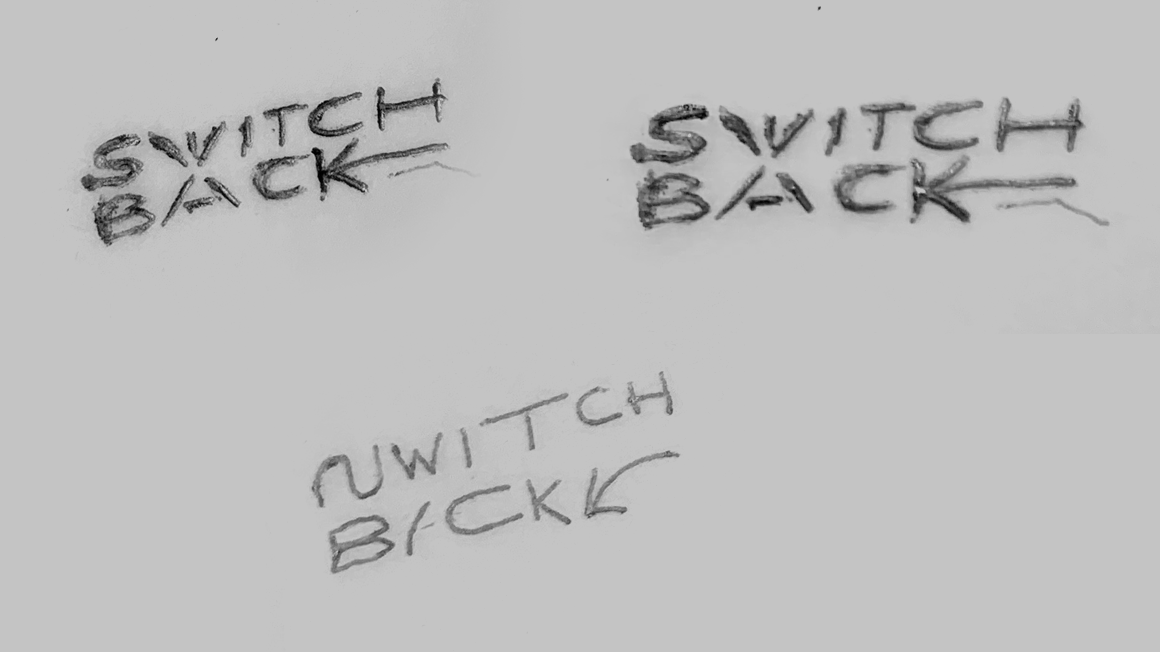 SWITCH
BACK
SWITCH
BACK
SWITCH
BACK